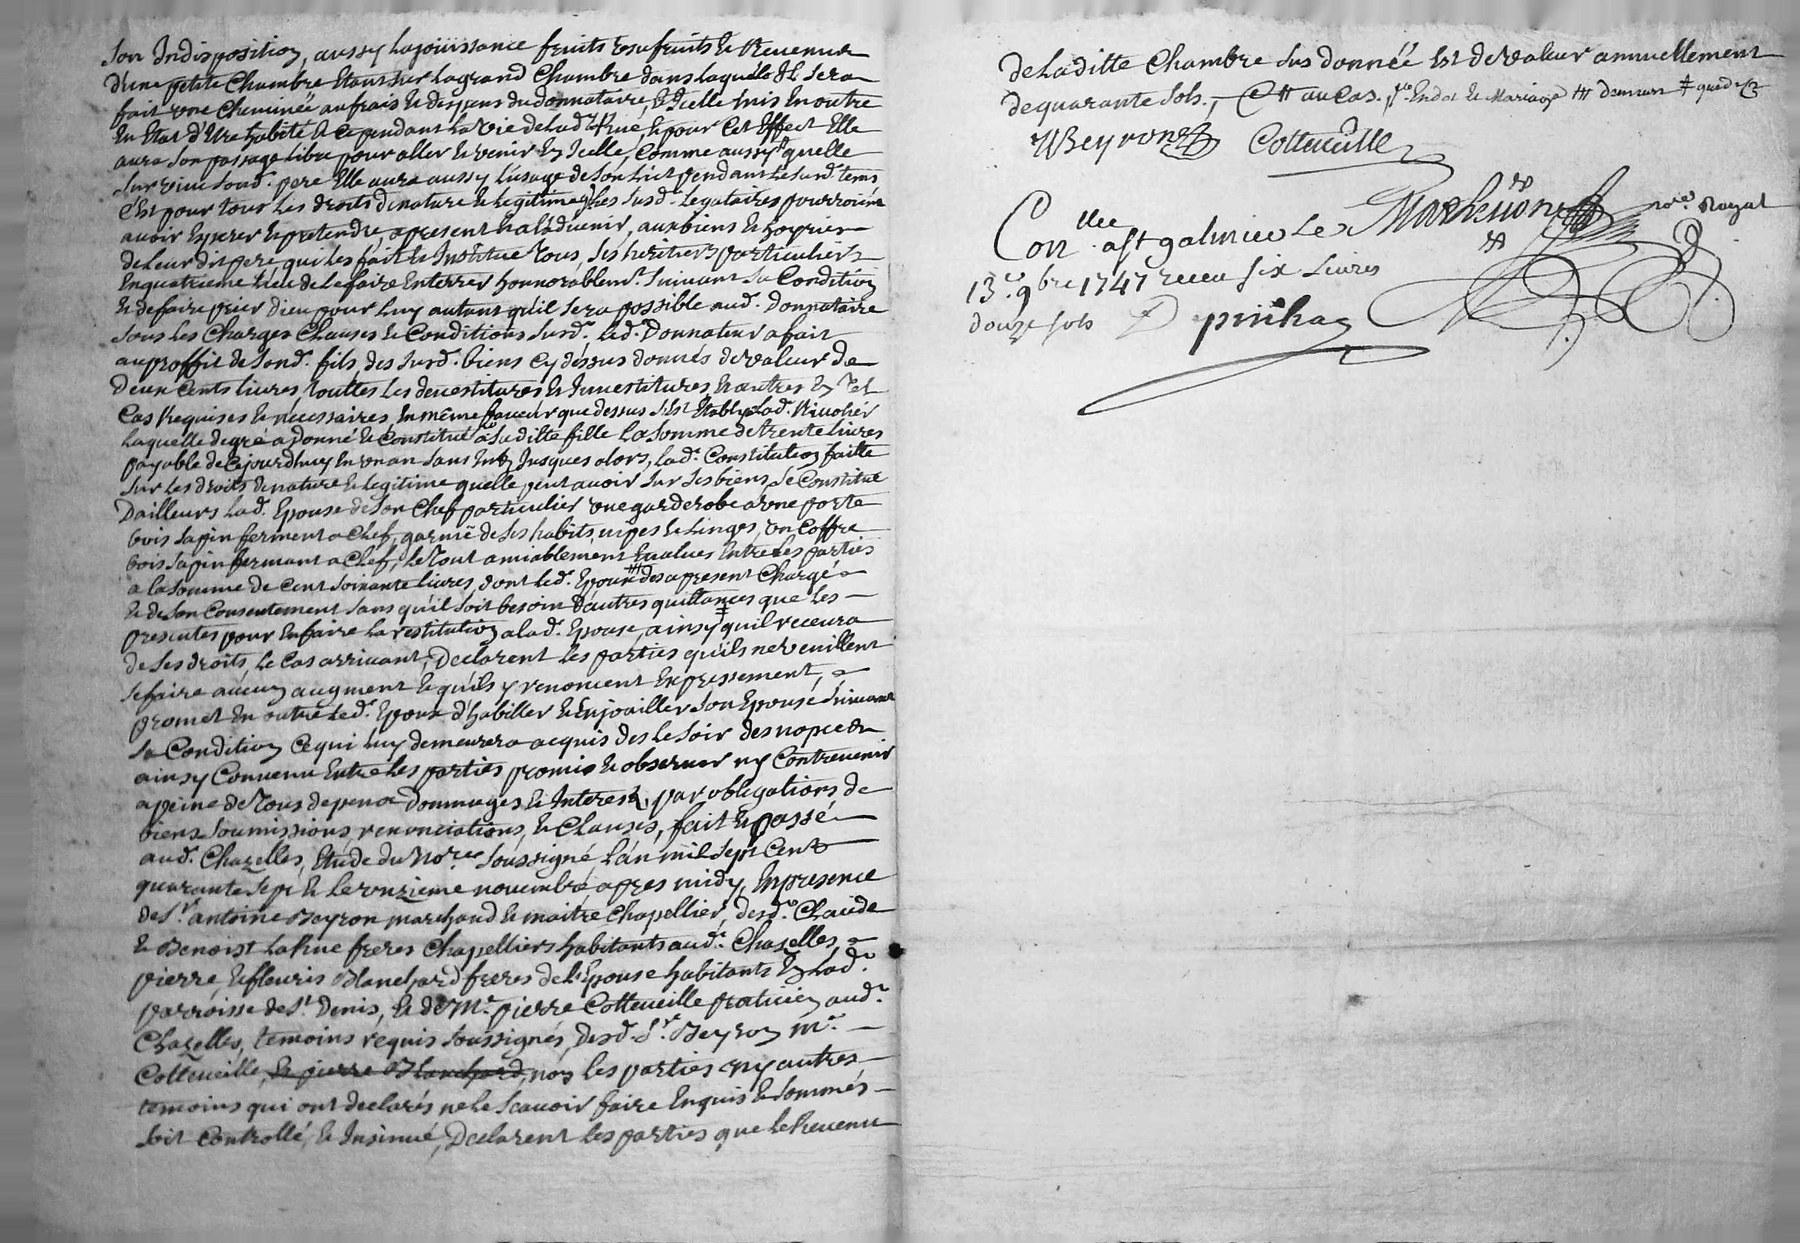 Son Indisposition, aussy la jouissance fruits usufruits & Revenus
d'une petite Chambre Etant sur la grand Chambre dans laquelle Il sera
fait une Cheminée au frais & despens du donnataire, & Icelle mis En outre
En Etat d'Etre habité & ce pendant la vie de lad.e Rue, & pour Cet Effect Elle
aura son passage libre pour aller & venir En Icelle, Comme aussy quelle
survive sond. pere Elle aura aussy l'usage de son lict pendant le susd. tems
c'est pour tous les droits de nature & legitime, les susd. legataires pourroient
avoir Esperer & pretendre a present & a l'advenir, aux biens & hoyrie
de leur dit pere qui les fait & Institue Tous, ses heritiers particuliers
En quatrieme lieu de le faire Enterrer honnorablem.t suivant sa Condition
& de faire prier dieu pour luy autant qu'il sera possible aud. donnataire
sous les Charges Clauses & Conditions susd. led. Donnateur a fait
au proffit de sond. fils, des susd. biens cy dessus donnés de valeur de
Deux Cents livres, touttes les devestitures & Investitures & autres En Tel
Cas Requises & necessaires, En même faveur que dessus s'Est Etablye lad. Rivoliér
laquelle de gré a donné & Constitué a sa ditte fille la somme de trente livres
payable de Cejourdhuy En un an sans Int. Jusques alors, lad. Constitution faitte
sur les droits de nature & legitime quelle peut avoir sur ses biens, se Constitue
Dailleurs lad. Epouse de son Chef particulier une garderobe a une porte
bois sapin ferment a Clef, garnie de ses habits nipes & linges, un Coffre
bois sapin fermant a Clef, le Tout amiablement Evalues Entre les parties
a la somme de Cent soixante livres, dont led. Epoux des a present Chargé
& de son Consentement sans qu'il soit besoin d'autres quittances que les
presentes pour En faire la restitution a lad. Epouse, ainsy quil recevra
de ses droits, le Cas arrivant, Declarent les parties qu'ils ne veuillent
se faire aucun augment & qu'ils y renoncent Expressement,
promet En outre led. Epoux d'habiller & Enjoailler son Epouse suivant
sa Condition Ce qui luy demeurera acquis des le soir des nopces
ainsy Convenu Entre les parties promis & observer ny Contrevenir
a peine de Tous depens Dommages & Interest, par obligations de
biens soumissions, renonciations, & Clauses, fait & passé
aud. Chazelles, Etude du No.re soussigné l'an mil sept Cents
quarante sept & le onzieme novembre apres midy, En presence
de S.r antoine Beyron marchand & maitre Chapellier, desd. Claude
& Benoist LaRue freres Chapelliers habitants aud. Chazelles,
pierre, & fleuris Blanchard freres de l'Epouse habitants En lad.
parroisse de S.t Denis, & de M.e pierre Cottencille praticien aud.
Chazelles, temoins requis soussignés, desd. S.r Beyron M.e
Cottencille, & pierre Blanchard, non les parties ny autres
temoins qui ont declarés ne le Scavoir faire Enquis & sommés
soit Controllé, & Insinué, Declarent les parties que le Revenu
de la ditte Chambre sus donnée Est de valeur annuellement
de quarante sols,
Beyron Cottencille
no.re Royal
Con.llee a St galmier Le
13.e 9bre 1747 receu six livres
douze sols Depinhac